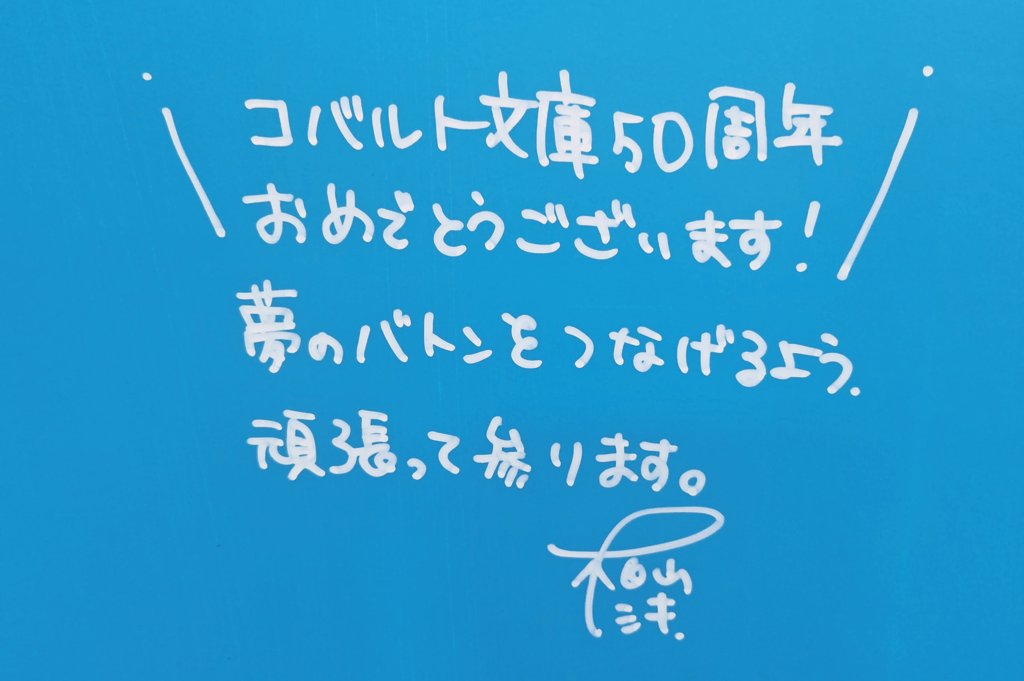 コバルト文庫50周年
おめでとうございます!
夢のバトンをつなげるよう.
頑張って参ります。
山
ミキ.